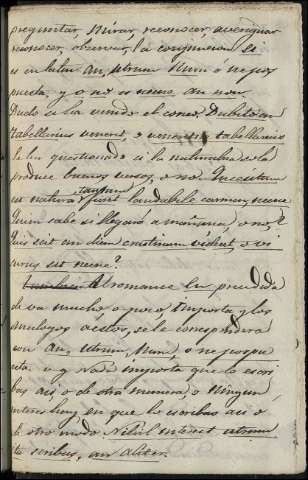 preguntar, mirar, reconocer, averiguar
reconocer, observar, la conjuncion si
es en latin an, utrum num ó ne pos
puesta y ó no es necne, an non.
Dudo si ha venido el correo. Dubito an
tabellarius venerit, o veneritne tabellarius
Se ha questionado si la naturaleza sola
produce buenos versos, o no. Quæsitum
est natura tantum fiat laudabile carmen, necne
Quien sabe si llegará a mañana, o no?
Quis scit an diem crastinum videat, o vi
surus sit necne?
El romance en precedida
de va mucho o poco, importa y los
analogos a estos, se le corresponderá
con an, utrum, num, o ne pospu
esta. v g Nada importa que lo escri
bas asi, o de otra manera, o ningun
interes hay en que lo escribas asi o
de otro modo Nihil interest utrum
ita scribas, an aliter.